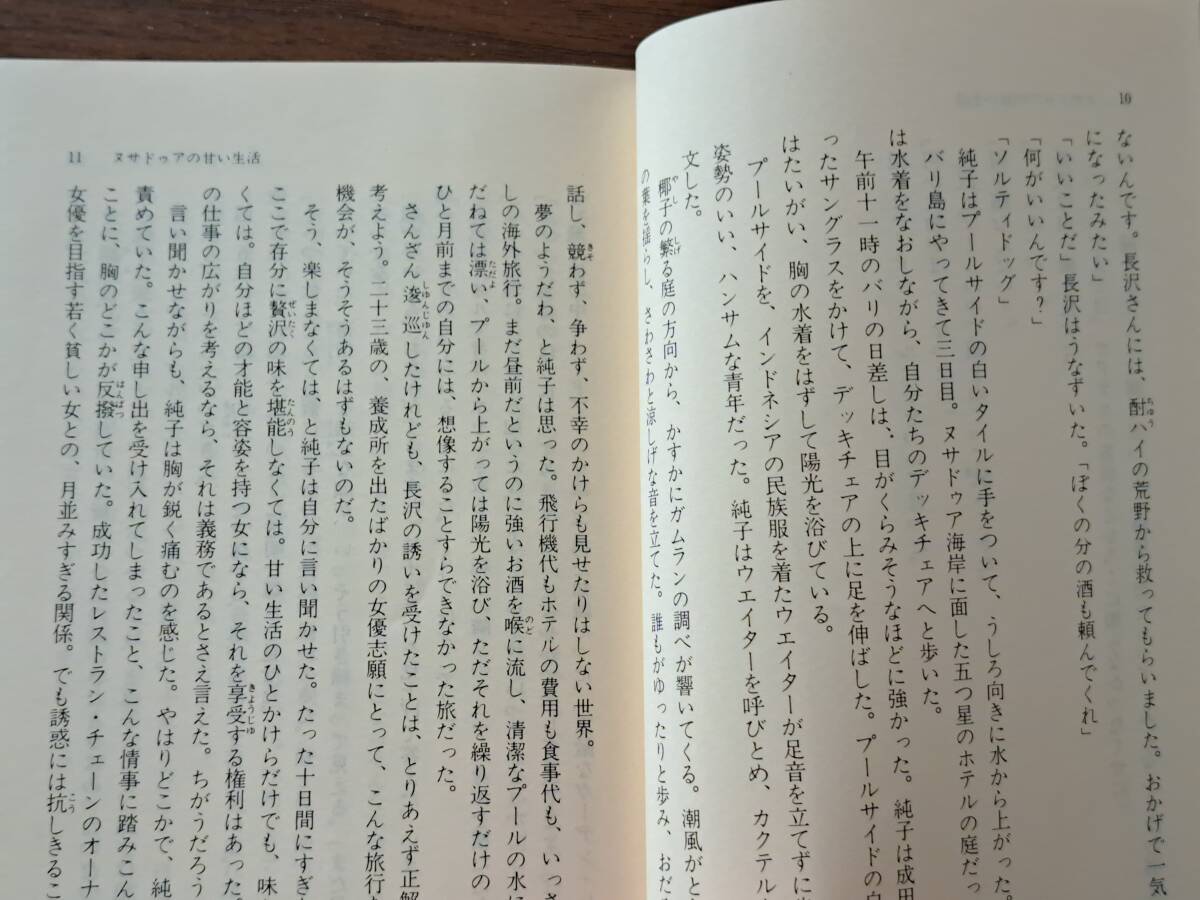 10
ないんです。長沢さんには、酎ハイの荒野から救ってもらいました。おかげで一気
になったみたい」
「いいことだ」長沢はうなずいた。「ぼくの分の酒も頼んでくれ」
「何がいいんです?」
「ソルティドッグ」
純子はプールサイドの白いタイルに手をついて、うしろ向きに水から上がった。
バリ島にやってきて三日目。ヌサドゥア海岸に面した五つ星のホテルの庭だっ
は水着をなおしながら、自分たちのデッキチェアへと歩いた。
午前十一時のバリの日差しは、目がくらみそうなほどに強かった。純子は成田
ったサングラスをかけて、デッキチェアの上に足を伸ばした。プールサイドの白
はたいがい、胸の水着をはずして陽光を浴びている。
プールサイドを、インドネシアの民族服を着たウエイターが足音を立てずに
姿勢のいい、ハンサムな青年だった。純子はウエイターを呼びとめ、カクテル
文した。
椰子の繁る庭の方向から、かすかにガムランの調べが響いてくる。潮風がと
の葉を揺らし、さわさわと涼しげな音を立てた。誰もがゆったりと歩み、おだ
11 ヌサドゥアの甘い生活
話し、競わず、争わず、不幸のかけらも見せたりはしない世界。
夢のようだわ、と純子は思った。飛行機代もホテルの費用も食事代も、いっさ
しの海外旅行。まだ昼前だというのに強いお酒を喉に流し、清潔なプールの水に
だねては漂い、プールから上がっては陽光を浴び、ただそれを繰り返すだけの
ひと月前までの自分には、想像することすらできなかった旅だった。
さんざん逡巡したけれども、長沢の誘いを受けたことは、とりあえず正解
考えよう。二十三歳の、養成所を出たばかりの女優志願にとって、こんな旅行
機会が、そうそうあるはずもないのだ。
そう、楽しまなくては、と純子は自分に言い聞かせた。たった十日間にすぎ
ここで存分に贅沢の味を堪能しなくては。甘い生活のひとかけらだけでも、味
くては。自分ほどの才能と容姿を持つ女になら、それを享受する権利はあった
の仕事の広がりを考えるなら、それは義務であるとさえ言えた。ちがうだろう
言い聞かせながらも、純子は胸が鋭く痛むのを感じた。やはりどこかで、純
責めていた。こんな申し出を受け入れてしまったこと、こんな情事に踏みこん
ことに、胸のどこかが反撥していた。成功したレストラン・チェーンのオーナ
女優を目指す若く貧しい女との、月並みすぎる関係。でも誘惑には抗しきるこ